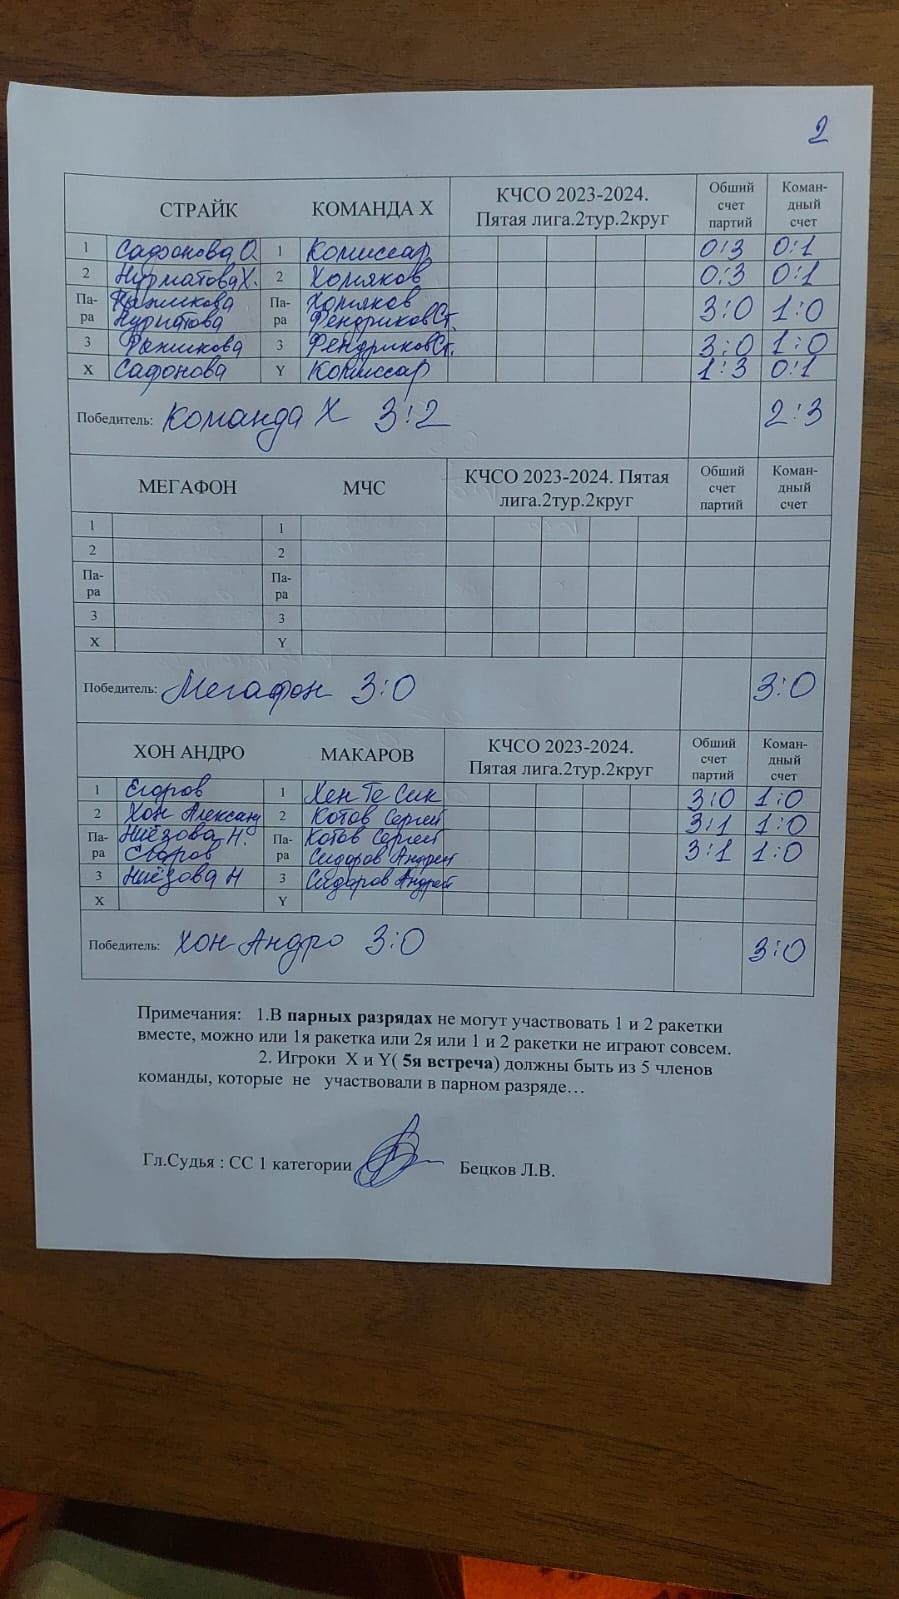 2
СТРАЙК КОМАНДА X КЧСО 2023-2024. Пятая лига.2тур.2круг Обший счет партий Коман-дный счет
1 Сафонова О. 1 Комиссар 0:3 0:1
2 Нурматова Х. 2 Хомяков 0:3 0:1
Па-ра Рыжикова Нурматова Па-ра Хомяков Фендриков Ст. 3:0 1:0
3 Рыжикова 3 Фендриков Ст. 3:0 1:0
X Сафонова Y Комиссар 1:3 0:1
Победитель: Команда X 3:2 2:3
МЕГАФОН МЧС КЧСО 2023-2024. Пятая лига.2тур.2круг Обший счет партий Коман-дный счет
1 1
2 2
Па-ра Па-ра
3 3
X Y
Победитель: Мегафон 3:0 3:0
ХОН АНДРО МАКАРОВ КЧСО 2023-2024. Пятая лига.2тур.2круг Обший счет партий Коман-дный счет
1 Егоров 1 Хен Те Сик 3:0 1:0
2 Хон Александ 2 Котов Сергей 3:1 1:0
Па-ра Ниёзова Н. Егоров Па-ра Котов Сергей Сидоров Андрей 3:1 1:0
3 Ниёзова Н 3 Сидоров Андрей
X Y
Победитель: Хон Андро 3:0 3:0
Примечания: 1.В парных разрядах не могут участвовать 1 и 2 ракетки
вместе, можно или 1я ракетка или 2я или 1 и 2 ракетки не играют совсем.
2. Игроки X и Y( 5я встреча) должны быть из 5 членов
команды, которые не участвовали в парном разряде…
Гл.Судья : СС 1 категории Бецков Л.В.